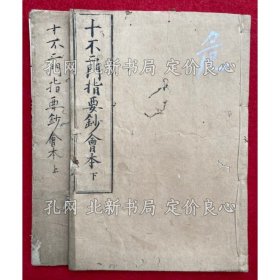 十不二門指要鈔會本 下
十不二門指要鈔會本 上
孔网 北新书局 定价良心
孔网 北新书局 定价良心